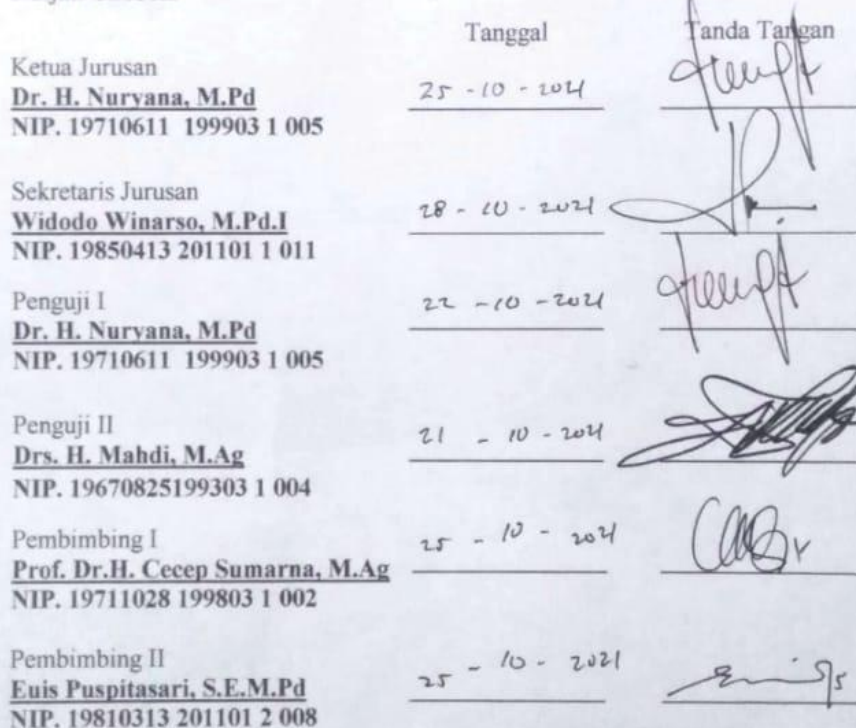 Tanggal Tanda Tangan
Ketua Jurusan
Dr. H. Nuryana, M.Pd
NIP. 19710611 199903 1 005
25 - 10 - 2021
Sekretaris Jurusan
Widodo Winarso, M.Pd.I
NIP. 19850413 201101 1 011
28 - 10 - 2021
Penguji I
Dr. H. Nuryana, M.Pd
NIP. 19710611 199903 1 005
22 - 10 - 2021
Penguji II
Drs. H. Mahdi, M.Ag
NIP. 19670825199303 1 004
21 - 10 - 2021
Pembimbing I
Prof. Dr.H. Cecep Sumarna, M.Ag
NIP. 19711028 199803 1 002
25 - 10 - 2021
Pembimbing II
Euis Puspitasari, S.E.M.Pd
NIP. 19810313 201101 2 008
25 - 10 - 2021